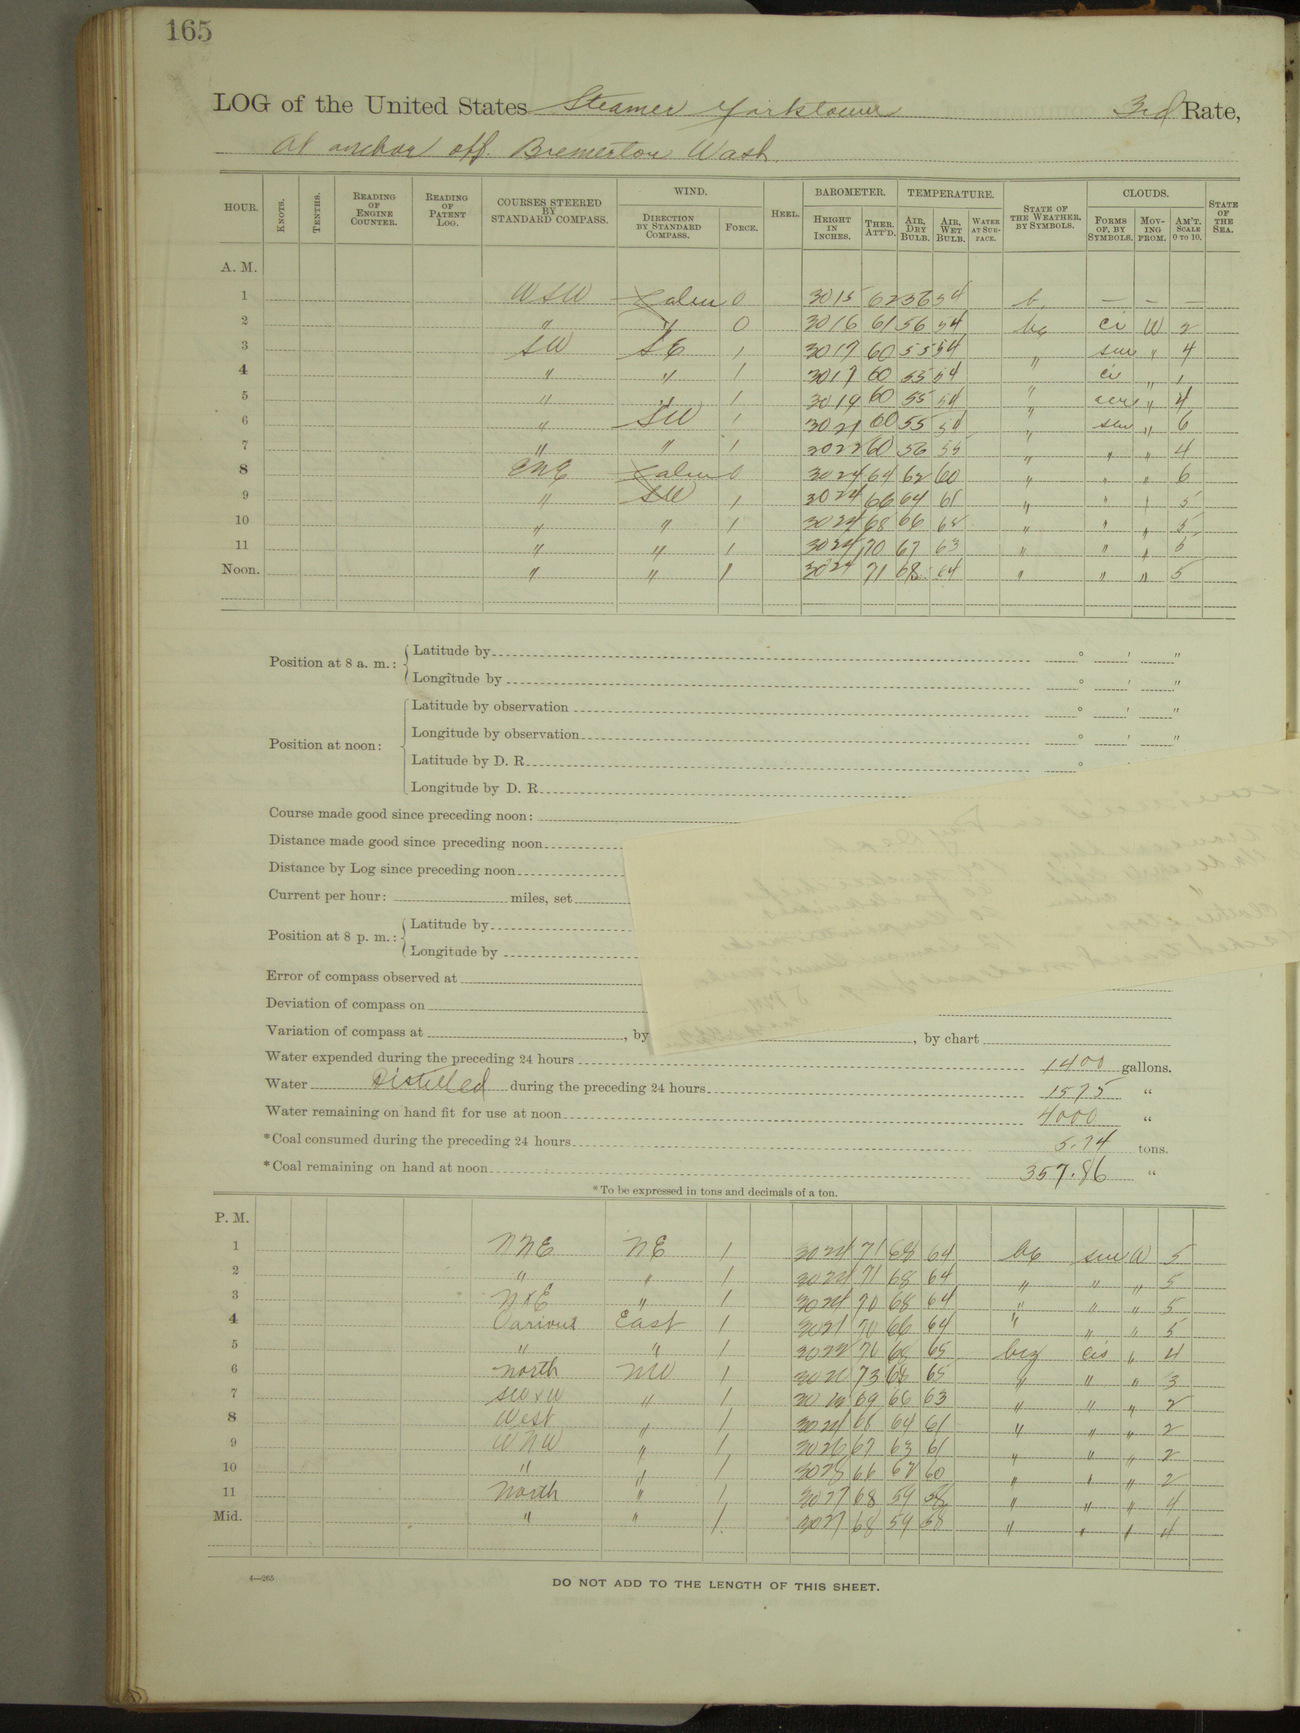 165
LOG of the United States Steamer Yorktown 3rd Rate,
At anchor off Bremerton Wash.
HOUR. KNOTS. TENTHS. READING OF ENGINE COUNTER. READING OF PATENT LOG. COURSES STEERED BY STANDARD COMPASS. WIND. DIRECTION BY STANDARD COMPASS. FORCE. HEEL. BAROMETER. HEIGHT IN INCHES. THER. ATT'D. TEMPERATURE. AIR, DRY BULB. AIR, WET BULB. WATER AT SURFACE. STATE OF THE WEATHER, BY SYMBOLS. CLOUDS. FORMS OF, BY SYMBOLS. MOVING FROM. AM'T. SCALE 0 TO 10. STATE OF THE SEA.
A. M.
1 WSW Calm 0 3015 62 56 54 b. — — —
2 " " 0 3016 61 56 54 bc ci W 2
3 SW SE 1 3017 60 55 54 " " 4
4 " " 1 3017 60 55 54 " ci " 1
5 " " 1 3019 60 55 54 " " 4
6 " SW 1 3021 60 55 54 " " 6
7 " " 1 3022 60 56 55 " " " 4
8 ENE Calm 0 3024 64 62 60 " " " 6
9 " SW 1 3024 66 64 61 " " " 5
10 " " 1 3024 68 66 " " " 5
11 " " 1 3024 70 67 63 " " " 5
Noon. " " 1 3024 71 68 64 " " " 5
Position at 8 a. m.: Latitude by ° ' "
Longitude by ° ' "
Position at noon: Latitude by observation ° ' "
Longitude by observation ° ' "
Latitude by D. R. °
Longitude by D. R.
Course made good since preceding noon:
Distance made good since preceding noon
Distance by Log since preceding noon
Current per hour: miles, set
Position at 8 p. m.: Latitude by
Longitude by
Error of compass observed at
Deviation of compass on
Variation of compass at , by , by chart
Water expended during the preceding 24 hours 1400 gallons.
Water Distilled during the preceding 24 hours 1575 "
Water remaining on hand fit for use at noon 4000 "
*Coal consumed during the preceding 24 hours 5.74 tons.
*Coal remaining on hand at noon 357.86 "
*To be expressed in tons and decimals of a ton.
P. M.
1 NNE NE 1 3024 71 68 64 bc W 5
2 " " 1 3024 71 68 64 " " " 5
3 NxE " 1 3024 70 68 64 " " " 5
4 Various East 1 3021 70 66 64 " " " 5
5 " " 1 3022 65 bcz " 4
6 North NW 1 3020 73 68 65 " " " 3
7 SWxW " 1 69 66 63 " " " 2
8 West " 1 3024 64 61 " " " 2
9 WNW " 1 3026 67 63 61 " " " 2
10 " " 1 66 62 60 " " " 2
11 North " 1 3027 68 59 58 " " " 4
Mid. " " 1 3027 68 59 58 " " " 4
4—265
DO NOT ADD TO THE LENGTH OF THIS SHEET.